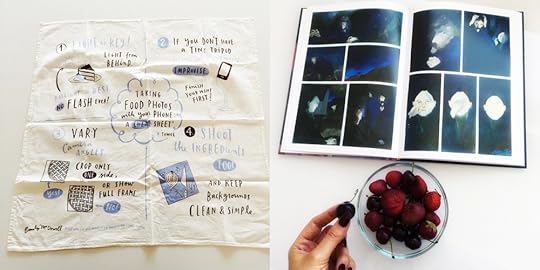 1 LIGHT is KEY!
LIGHT from
BEHIND.
NO FLASH ever!
2 IF YOU DON'T HAVE
a TINY TRIPOD
IMPROVISE
FINISH
YOUR WINE
FIRST!
TAKING
FOOD PHOTOS
with your PHONE
SHEET
3 VARY
Camera
ANGLES
CROP ONLY
ONE side,
OR SHOW
FULL FRAME
yes!
4 SHOOT
the INGREDIENTS
TOO!
AND KEEP
Backgrounds
CLEAN & SIMPLE.
Emily McDowell